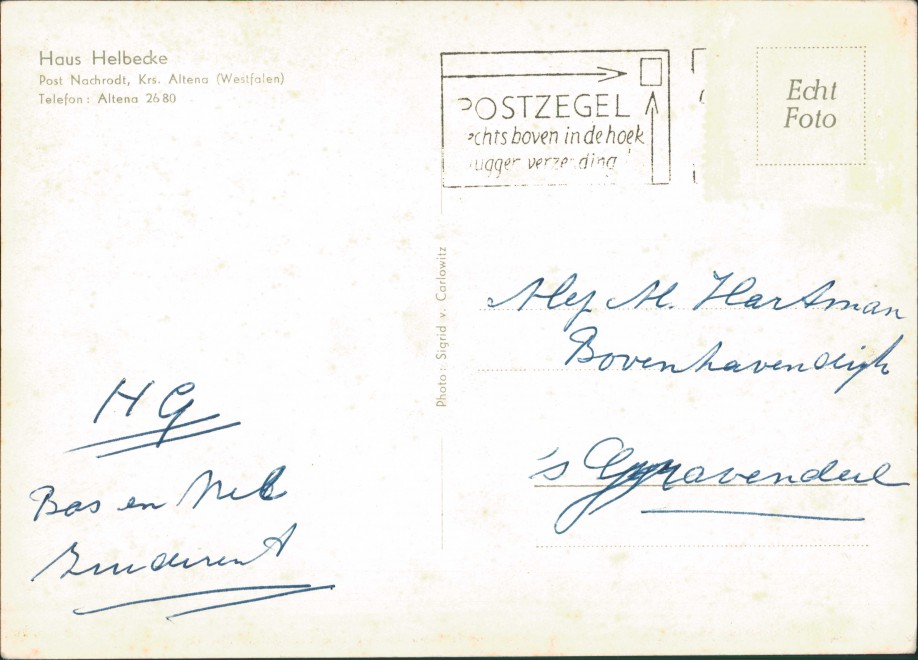 Haus Helbecke
Post Nachrodt, Krs. Altena (Westfalen)
Telefon: Altena 2680
POSTZEGEL
chts boven in de hoek
ugger verzending
Echt
Foto
Photo: Sigrid v. Carlowitz
M. Hartman
Bovenhavendijk
's Gravendeel
H G
Bas en Nel